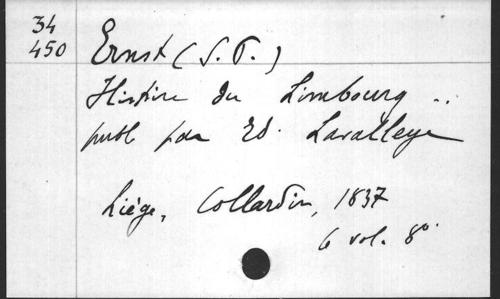 34
450
Ernst (S. P.)
Histoire du Limbourg ..
publ par Ed. Lavalleye
Liège, Collardin, 1837
6 vol. 8°